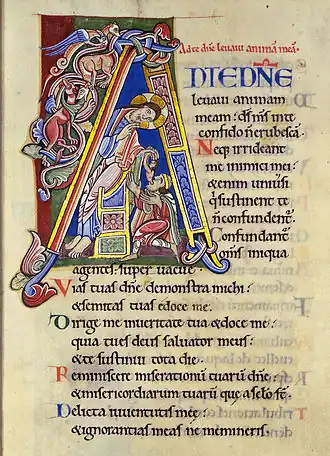 Ad te dn̄e levavi animā meā.
AD TE DN̄E
levavi animam
meam: ds̄ m̄s inte
confido n̄ erubescā.
Neq; irrideant
me inimici mei:
&enim universi
qui sustinent te
n̄ confundent.
Confundant
om̄s iniqua
agentes: super vacue.
Vias tuas dn̄e demonstra michi:
&semitas tuas edoce me.
Dirige me inveritate tua &doce me:
quia tu es deus salvator meus:
&te sustinui tota die.
Reminiscere miserationū tuarū dn̄e:
&misericordiarum tuarū que a sc̄lo st̄.
Delicta iuventutis meę:
&ignorantias meas ne memineris.